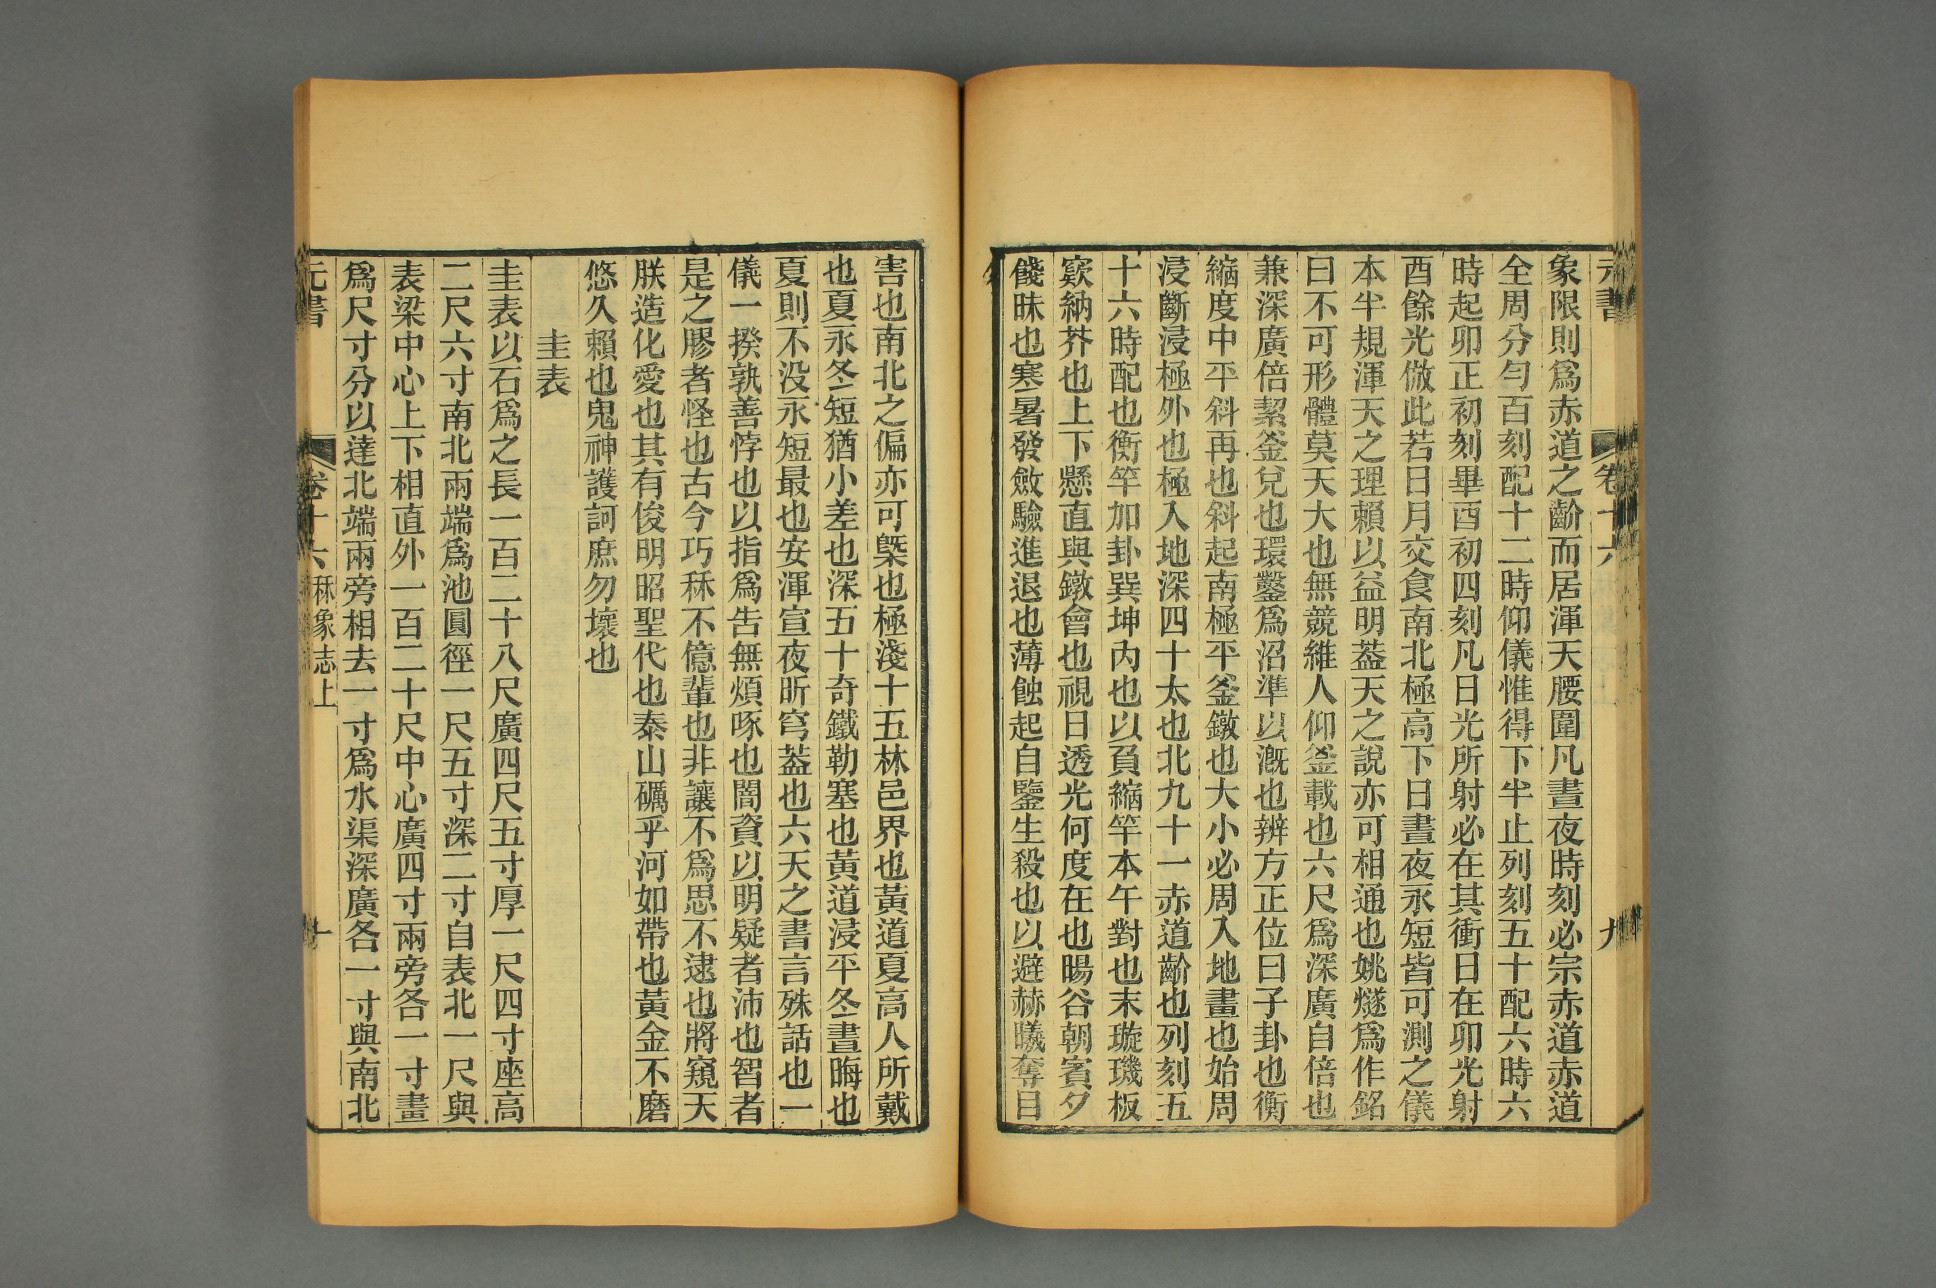 元書
卷十六
九
象限則爲赤道之齡而居渾天腰圍凡晝夜時刻必宗赤道赤道
全周分勻百刻配十二時仰儀惟得下半止列刻五十配六時六
時起卯正初刻畢酉初四刻凡日光所射必在其衝日在卯光射
酉餘光倣此若日月交食南北極高下日晝夜永短皆可測之儀
本半規渾天之理賴以益明葢天之說亦可相通也姚燧爲作銘
曰不可形體莫天大也無競維人仰釜載也六尺爲深廣自倍也
兼深廣倍絜釜兌也環鑿爲沼準以漑也辨方正位曰子卦也衡
縮度中平斜再也斜起南極平釜鐓也大小必周入地畫也始周
浸斷浸極外也極入地深四十太也北九十一赤道齡也列刻五
十六時配也衡竿加卦巽坤內也以負縮竿本午對也末璇璣板
窾納芥也上下懸直與鐓會也視日透光何度在也暘谷朝賓夕
餞昧也寒暑發斂驗進退也薄蝕起自鑒生殺也以避赫曦奪目
害也南北之偏亦可槩也極淺十五林邑界也黃道夏高人所戴
也夏永冬短猶小差也深五十奇鐵勒塞也黃道浸平冬晝晦也
夏則不没永短最也安渾宣夜昕穹葢也六天之書言殊話也一
儀一揆孰善悖也以指爲告無煩啄也闇資以明疑者沛也智者
是之膠者怪也古今巧秝不億輩也非讓不爲思不逮也將窺天
朕造化愛也其有俊明昭聖代也泰山礪乎河如帶也黃金不磨
悠久賴也鬼神護訶庶勿壞也
圭表
圭表以石爲之長一百二十八尺廣四尺五寸厚一尺四寸座高
二尺六寸南北兩端爲池圓徑一尺五寸深二寸自表北一尺與
表梁中心上下相直外一百二十尺中心廣四寸兩旁各一寸畫
爲尺寸分以達北端兩旁相去一寸爲水渠深廣各一寸與南北
元書
卷十六 秝象志上
十